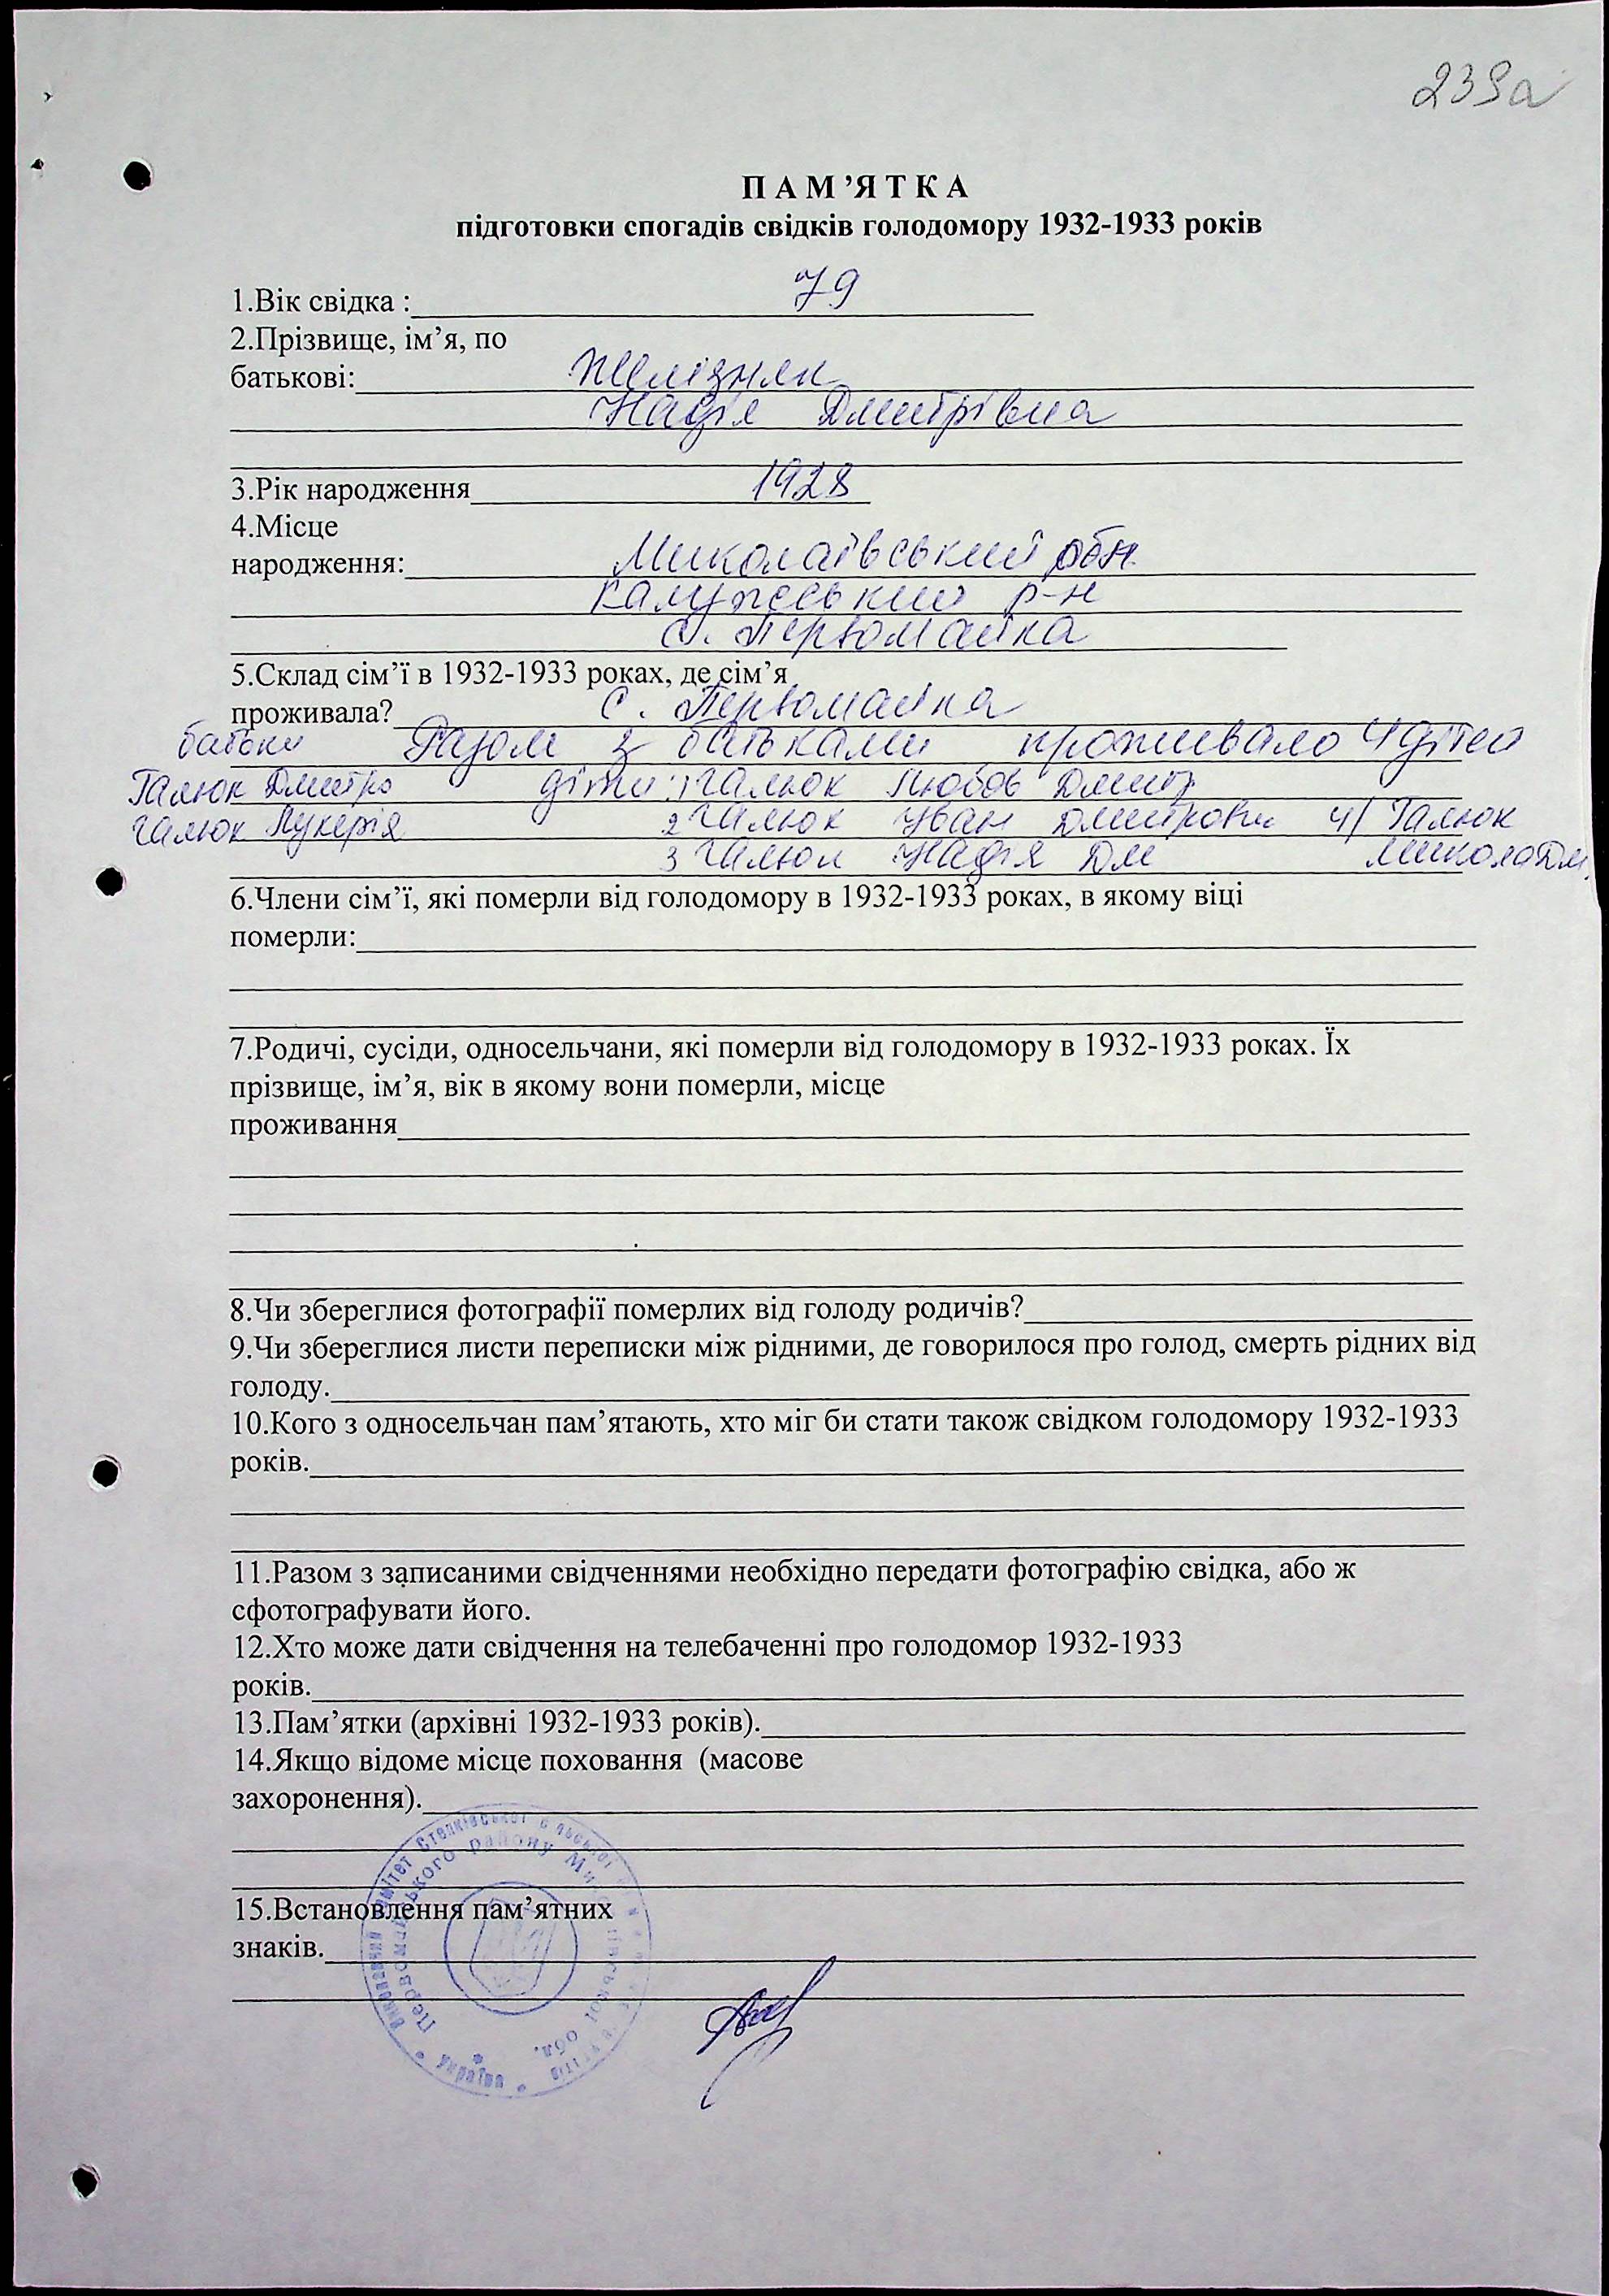 239а
ПАМ’ЯТКА
підготовки спогадів свідків голодомору 1932-1933 років
1.Вік свідка : 79
2.Прізвище, ім’я, по
батькові: Желізняк
Надія Дмитрівна
3.Рік народження 1928
4.Місце
народження: Миколаївський обл.
р-н
с. Первомайка
5.Склад сім’ї в 1932-1933 роках, де сім’я
проживала? с. Первомайка
батьки Разом з батьками проживало 4 дітей
Галюк Дмитро діти: 1 Галюк Любов Дмитр
Галюк Лукерія 2 Галюк Іван Дмитрович 4/ Галюк
3 Галюк Надія Дм Микола Дм.
6.Члени сім’ї, які померли від голодомору в 1932-1933 роках, в якому віці
померли:
7.Родичі, сусіди, односельчани, які померли від голодомору в 1932-1933 роках. Їх
прізвище, ім’я, вік в якому вони померли, місце
проживання
8.Чи збереглися фотографії померлих від голоду родичів?
9.Чи збереглися листи переписки між рідними, де говорилося про голод, смерть рідних від
голоду.
10.Кого з односельчан пам’ятають, хто міг би стати також свідком голодомору 1932-1933
років.
11.Разом з записаними свідченнями необхідно передати фотографію свідка, або ж
сфотографувати його.
12.Хто може дати свідчення на телебаченні про голодомор 1932-1933
років.
13.Пам’ятки (архівні 1932-1933 років).
14.Якщо відоме місце поховання (масове
захоронення).
15.Встановлення пам’ятних
знаків.
Виконавчий комітет Степківської сільської
Первомайського району Миколаївської обл.
Україна